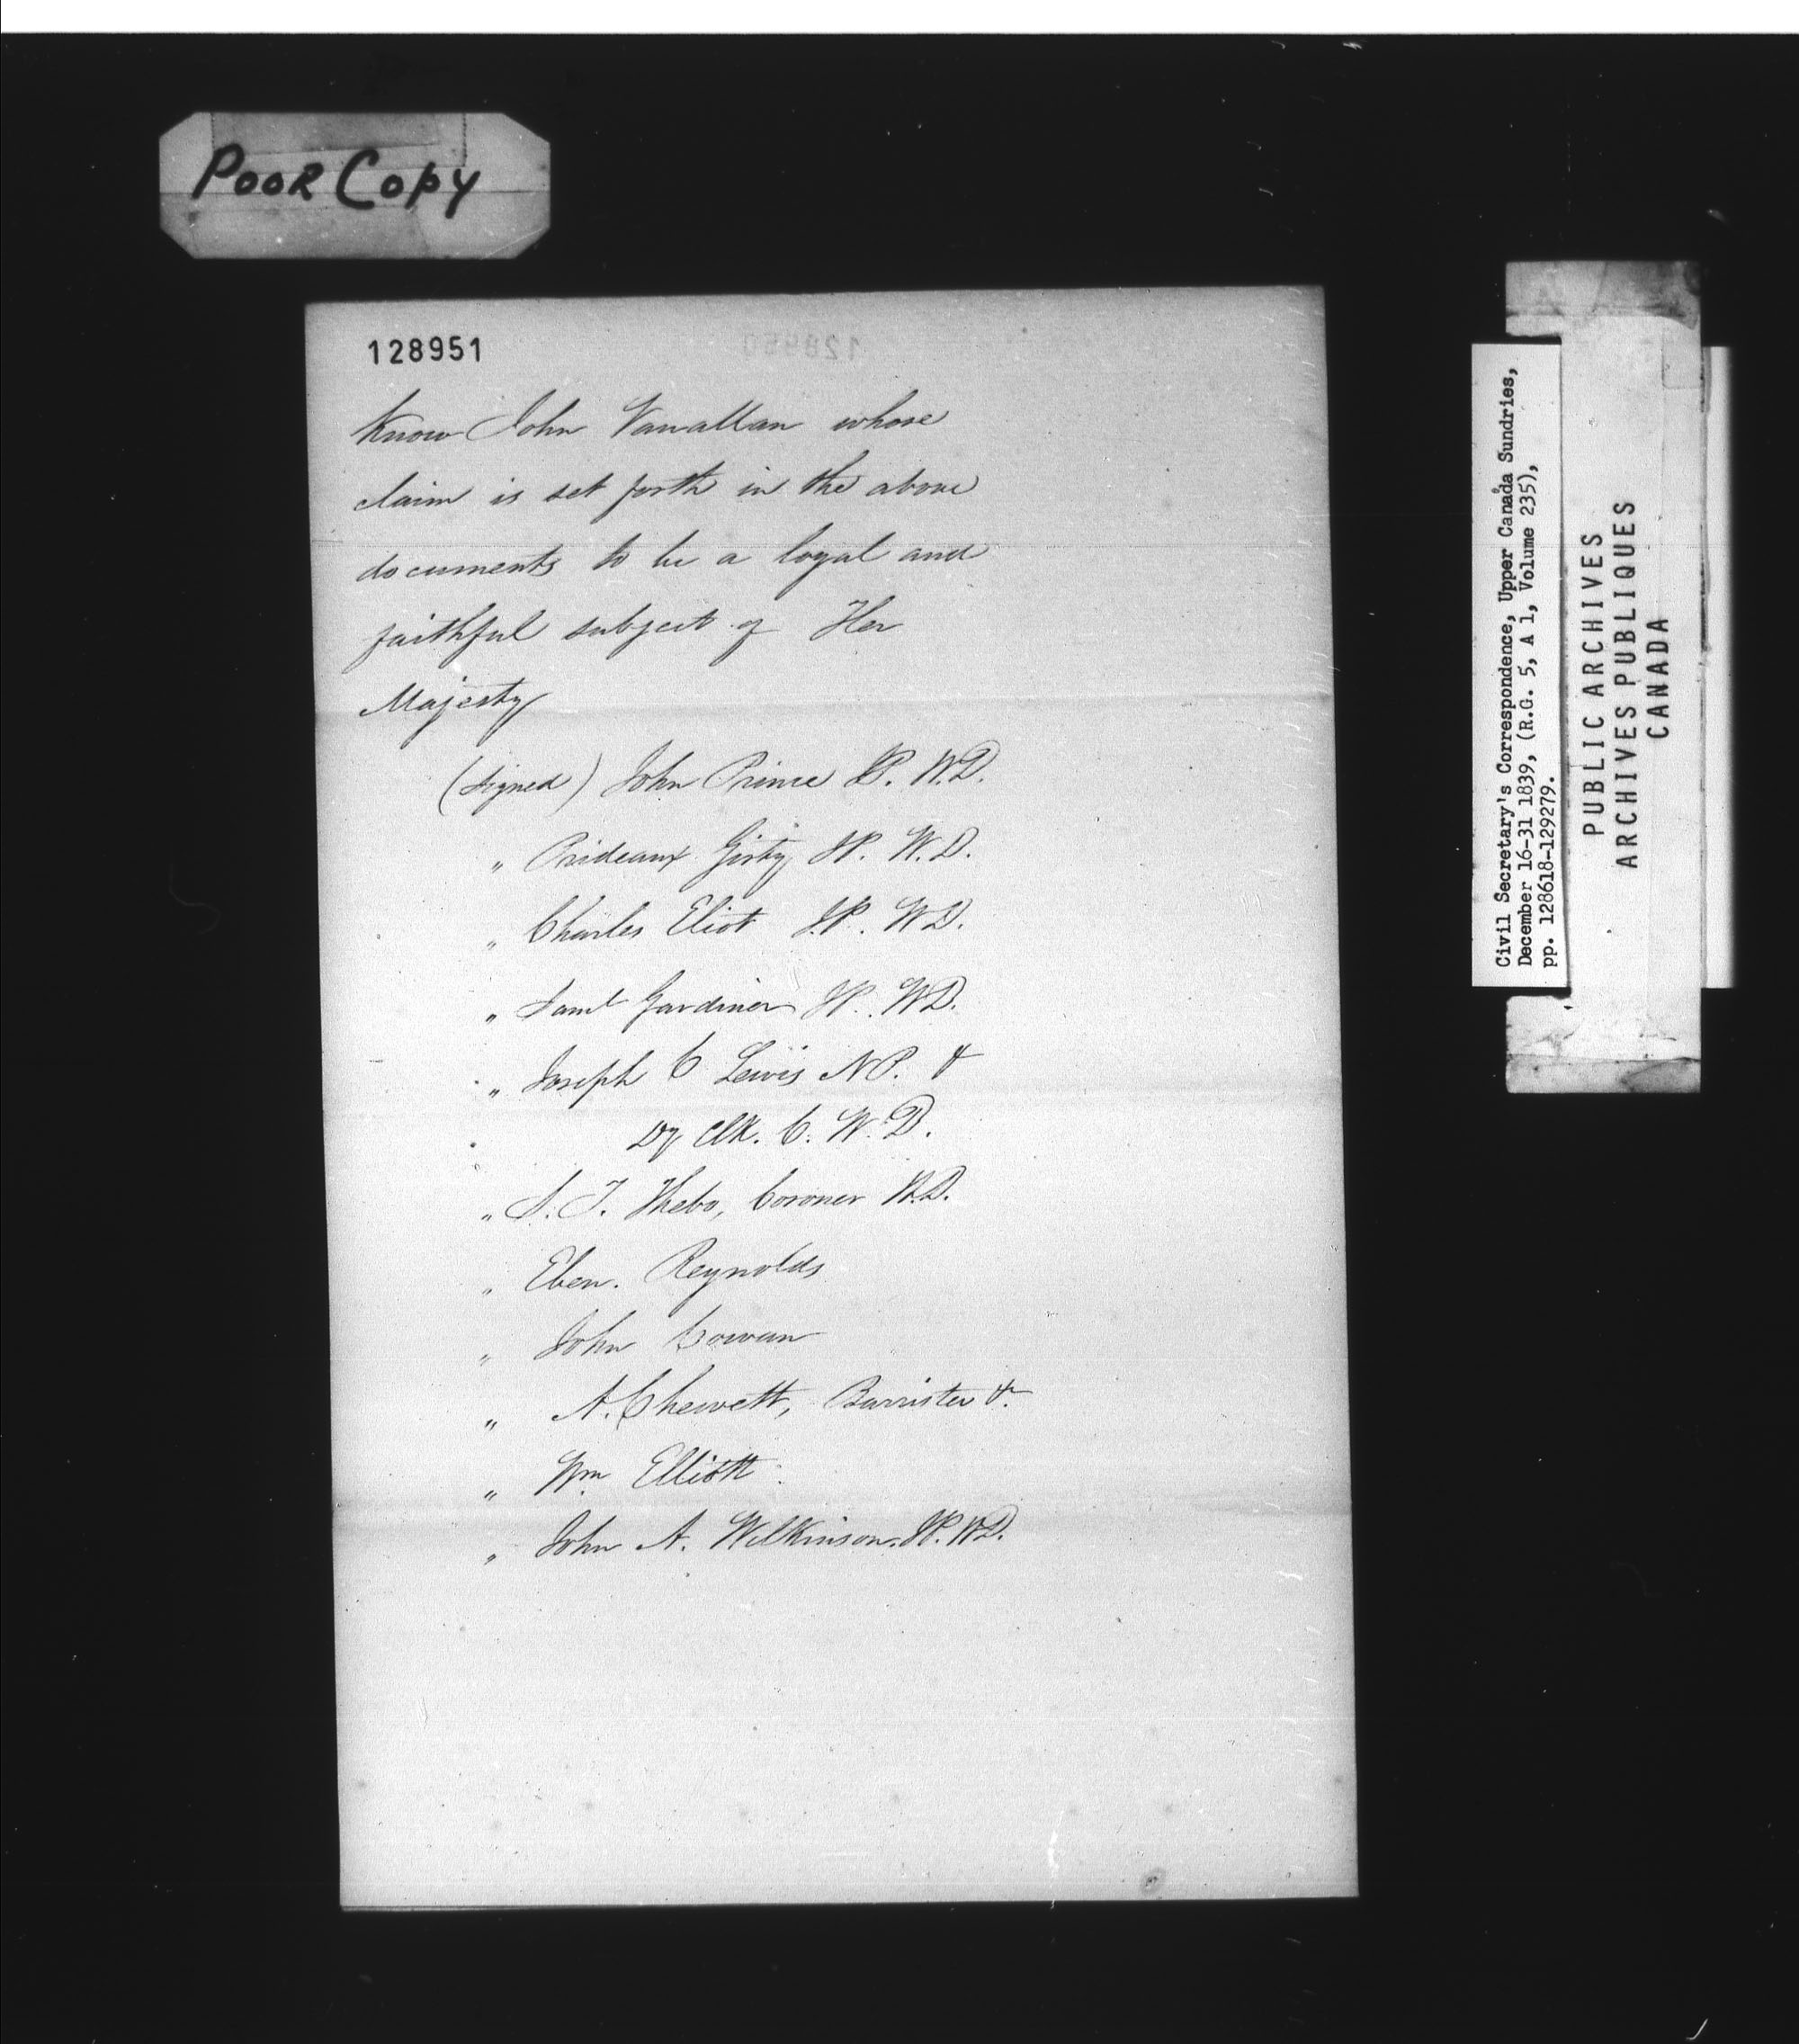 POOR COPY
128951
know John Vanallan whose
claim is set forth in the above
documents to be a loyal and
faithful subject of Her
Majesty
(signed) John Prince JP. W.D.
" Prideaux Girty JP. W.D.
" Charles Eliot J.P. W.D.
" Saml Gardiner JP. W.D.
" Joseph C Lewis N P. &
Dy Clk. C. W. D.
" S. T. Thebo, Coroner W.D.
" Eben. Reynolds
" John Cowan
" A. Chewett, Barrister &.
" Wm Elliott
" John A. Wilkinson. JP. W.D.
Civil Secretary's Correspondence, Upper Canada Sundries,
December 16-31 1839, (R.G. 5, A 1, Volume 235),
pp. 128618-129279.
PUBLIC ARCHIVES
ARCHIVES PUBLIQUES
CANADA